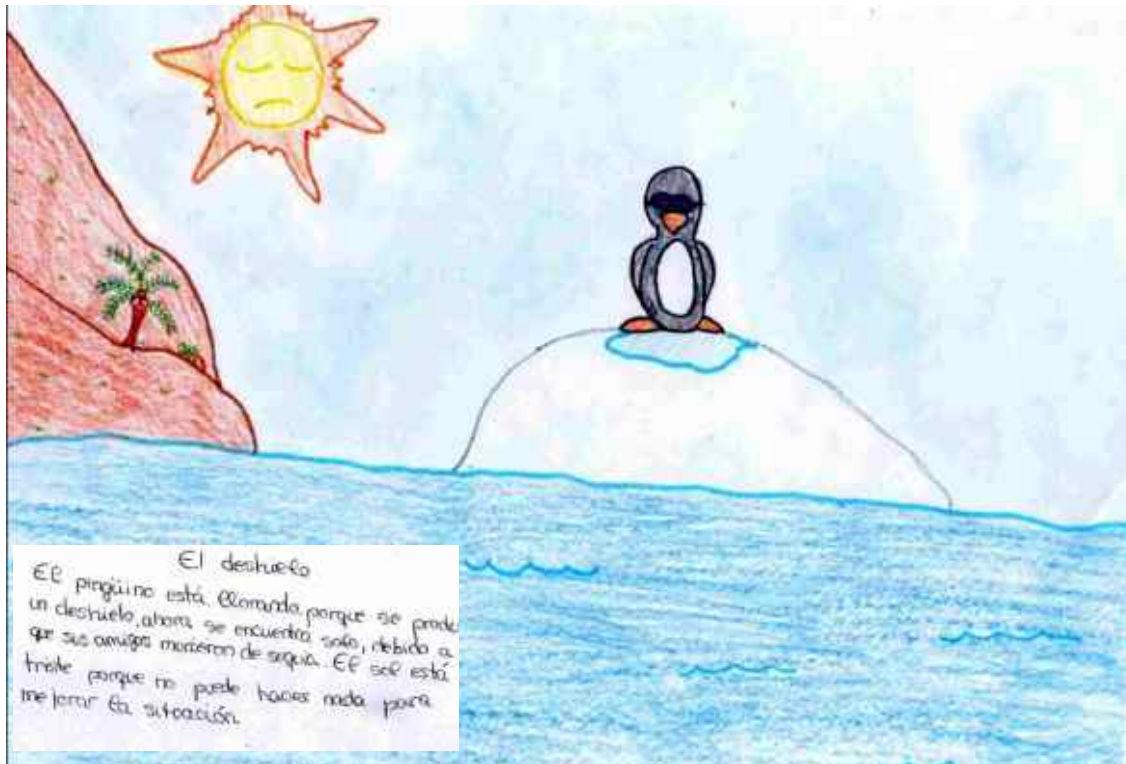 El deshielo
El pingüino está llorando porque se produ
un deshielo, ahora se encuentra solo, debido a
que sus amigos murieron de sequia. El sol está
triste porque no puede hacer nada para
mejorar la situación